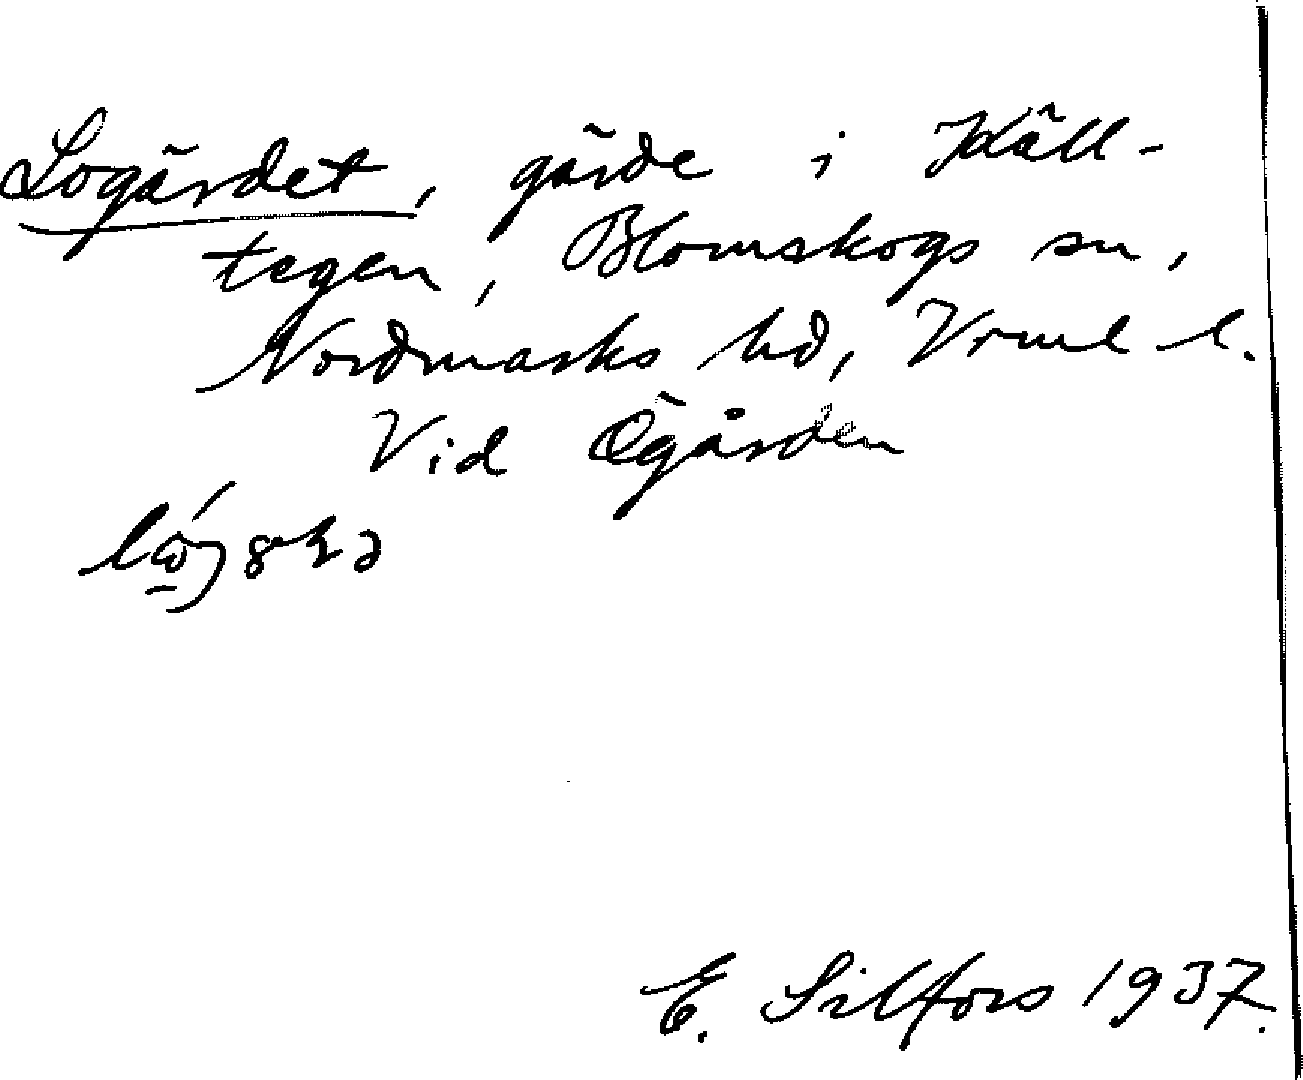 Logärdet, gärde i Käll-
tegen, Blomskogs sn,
Nordmarks hd, Vrml l.
Vid Ögården
E. Silfors 1937.